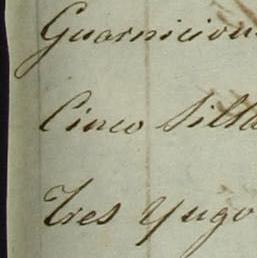 Guarnicion
Cinco Silla
Tres Yugo